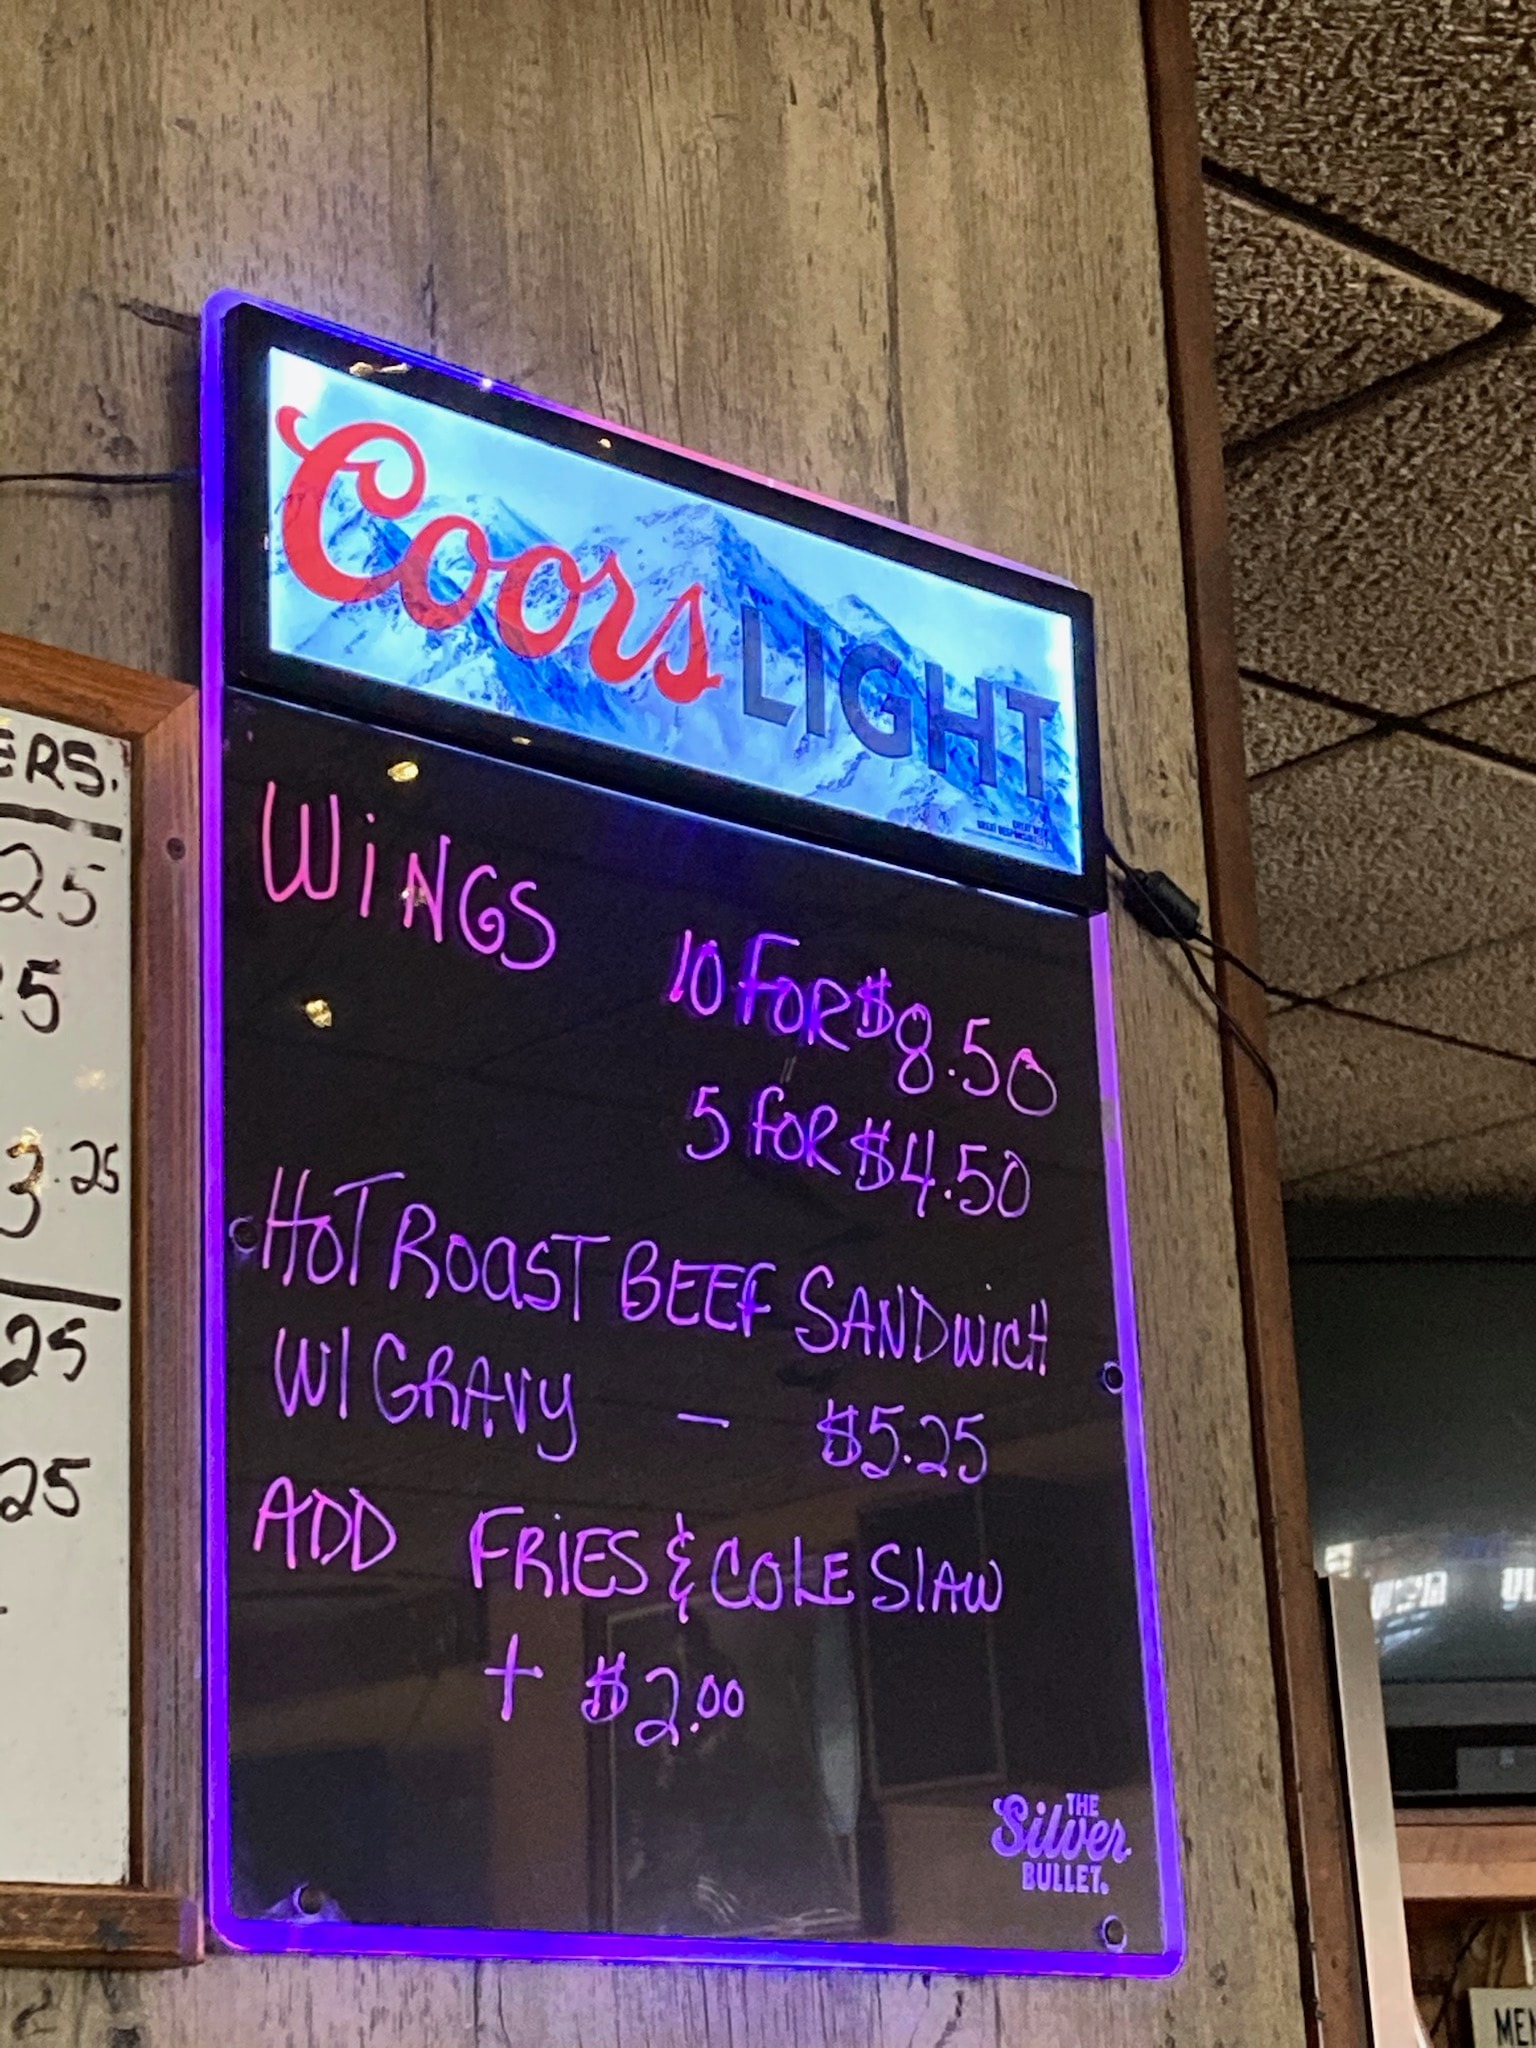 Coors LIGHT
WiNGS
10 FOR $8.50
5 FOR $4.50
HOT ROAST BEEF SANDWiCH
W/ GRAVY - $5.25
ADD FRiES & COLE SlAW
+ $2.00
THE
Silver
BULLET.
ERS.
25
25
3.25
25
25
MEN